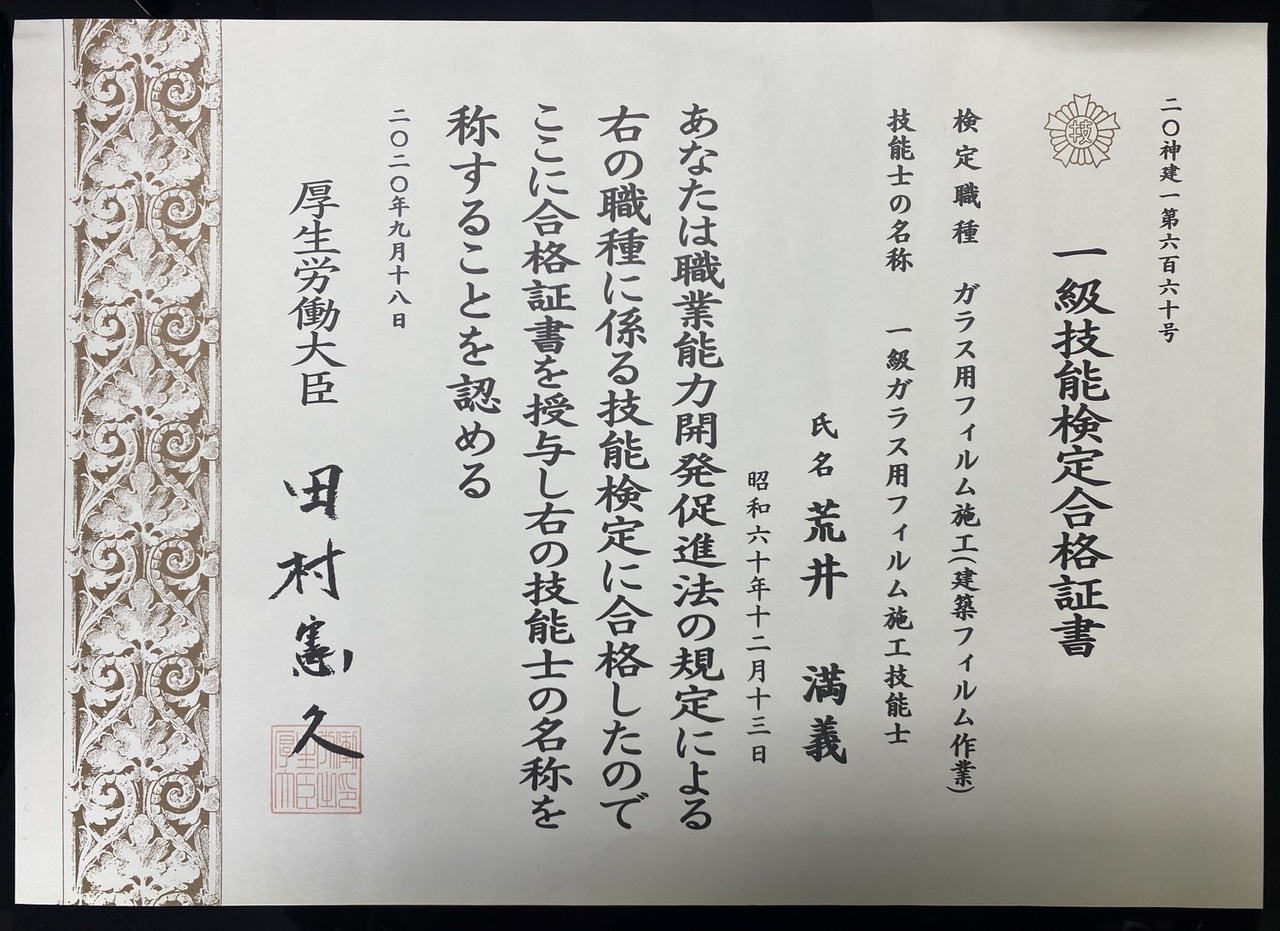 二〇神建一第六百六十号
技
一級技能検定合格証書
検定職種 ガラス用フィルム施工(建築フィルム作業)
技能士の名称 一級ガラス用フィルム施工技能士
氏名 荒井 満義
昭和六十年十二月十三日
あなたは職業能力開発促進法の規定による
右の職種に係る技能検定に合格したので
ここに合格証書を授与し右の技能士の名称を
称することを認める
二〇二〇年九月十八日
厚生労働大臣 田村憲久